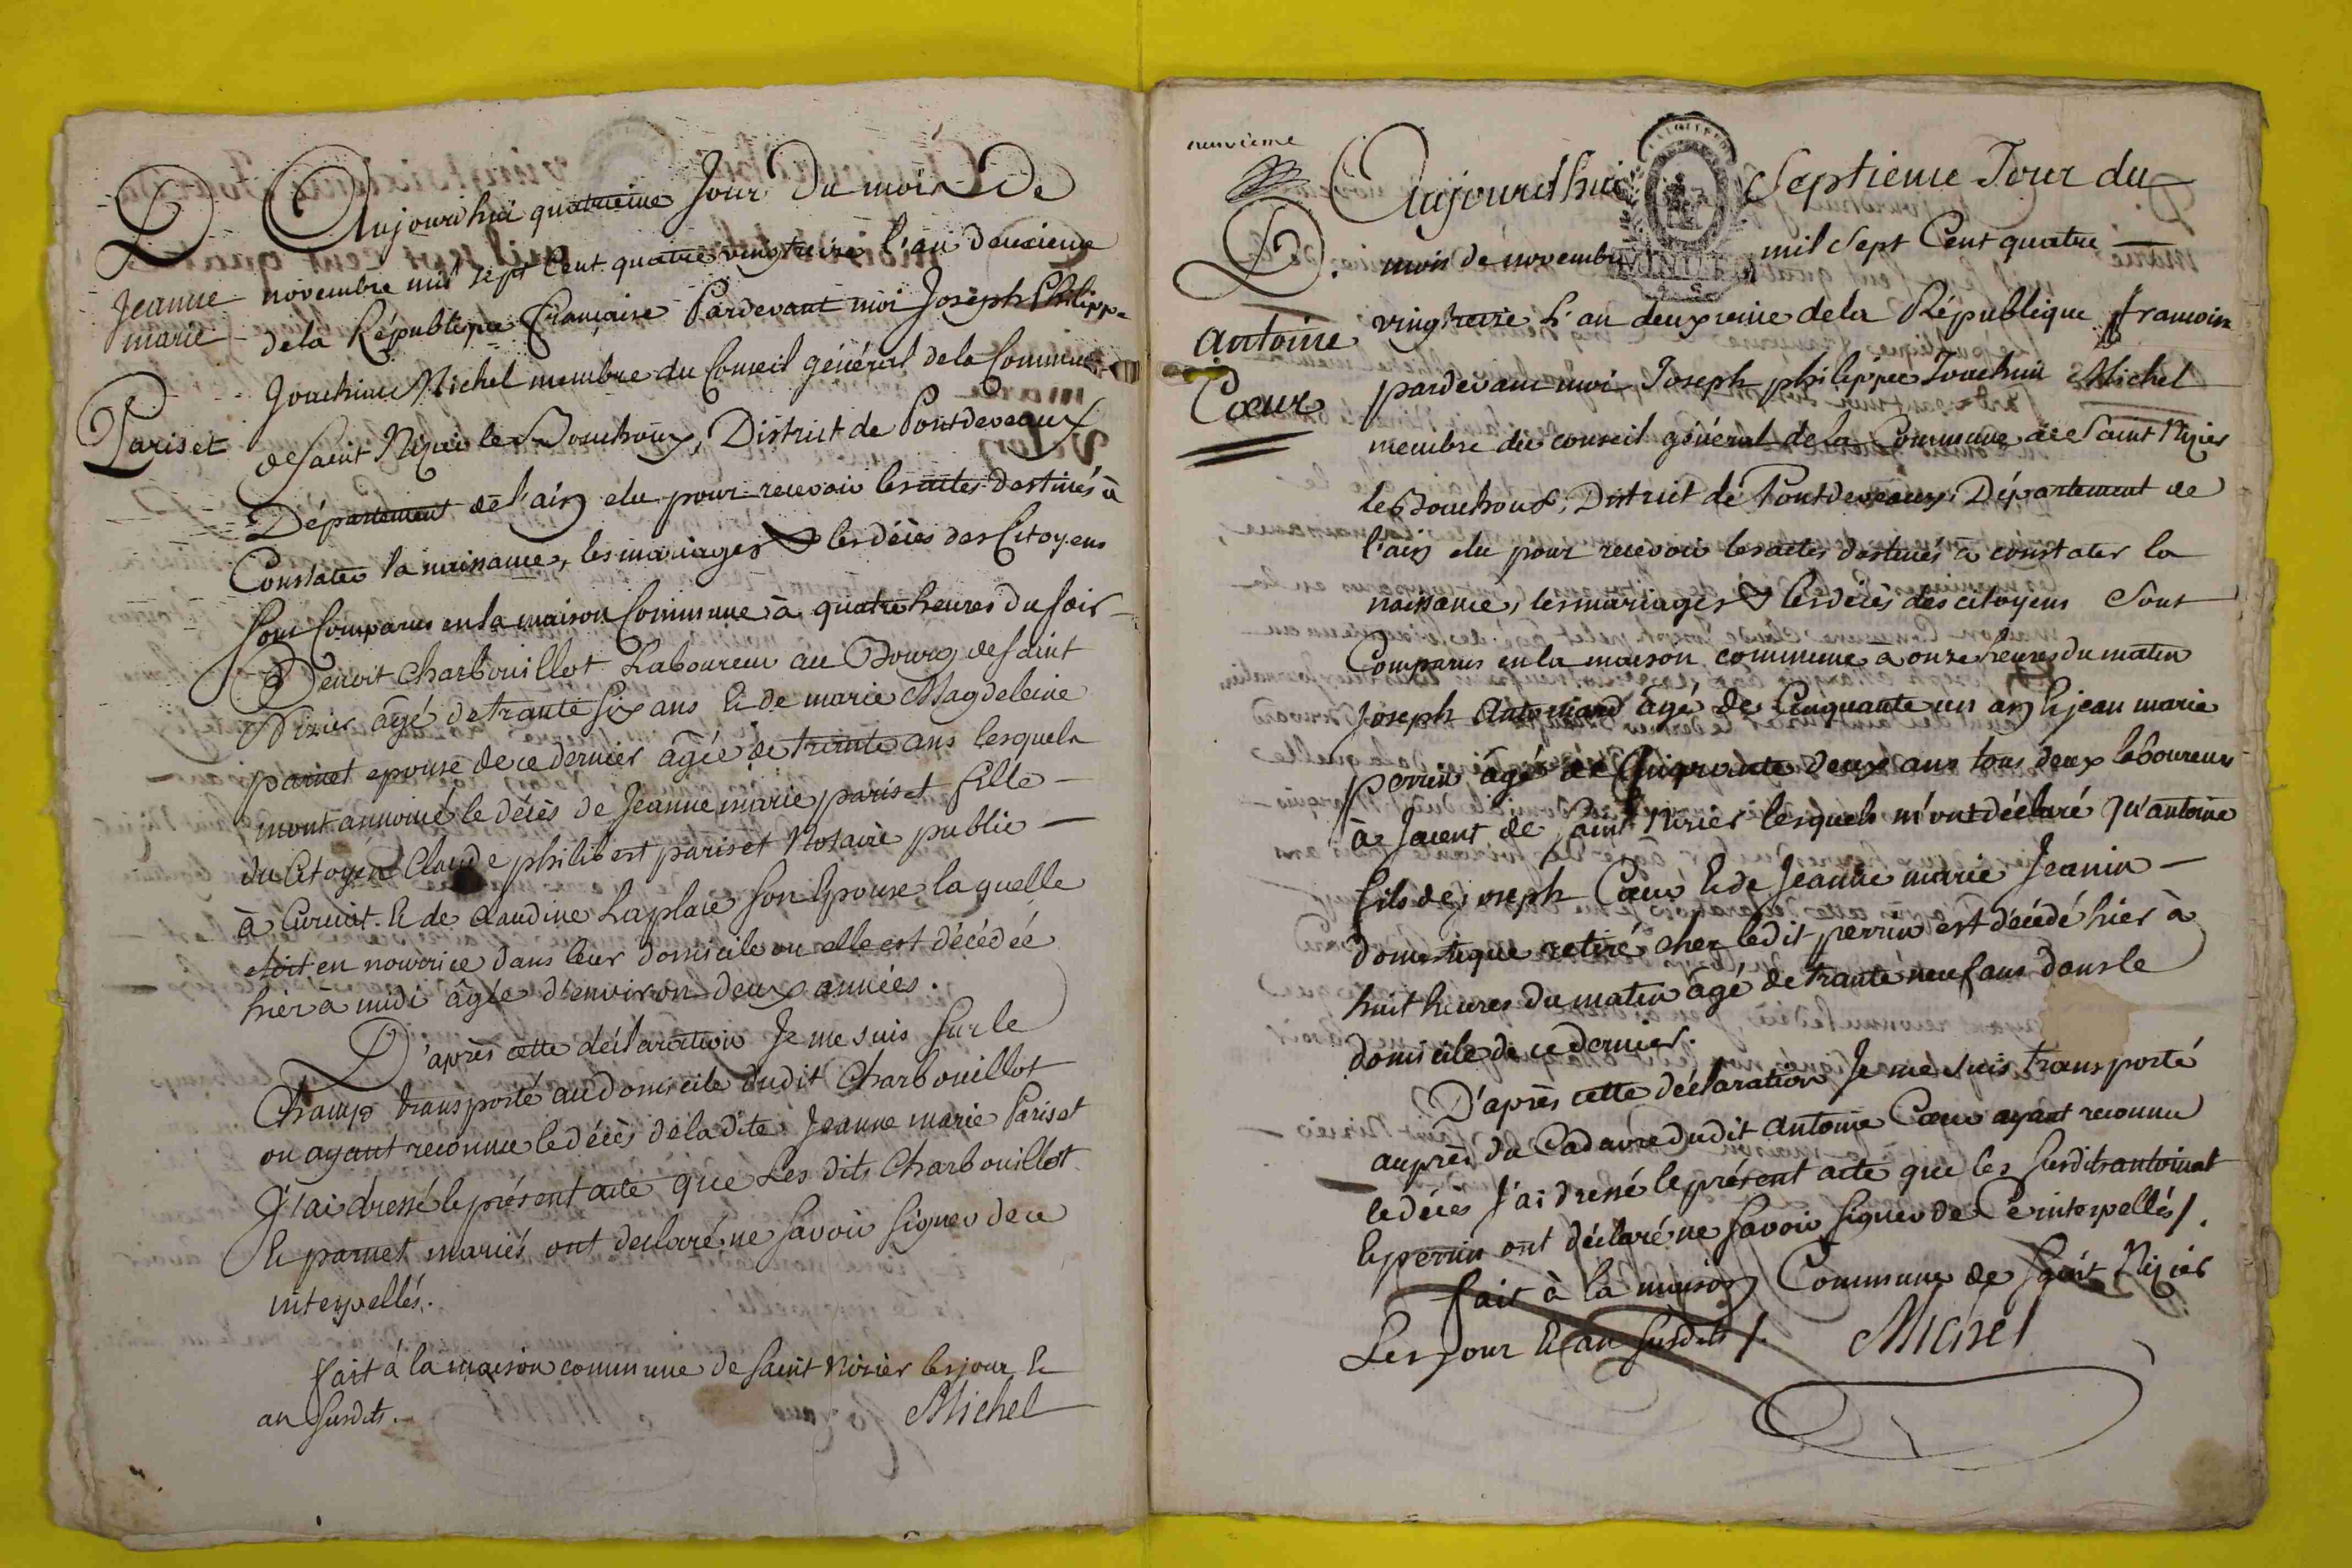 D
Jeanne
marie
Pariset
Aujourdhui quatrieme Jour du mois De
novembre mil sept Cent quatre vingt treize l'an deuxieme
dela République Française Pardevant moi Joseph Philippe
Joachim Michel membre du Conseil général dela Commune
de saint Nizier le Bouchoux, District de Pontdevaux
Département de l'ain elu pour recevoir les actes destinés à
Constater la naissance, les mariages & les décès des Citoyens
sont Comparus en la maison Commune à quatre heures du soir
Benoit Charbouillot Laboureur au Bourg de saint
Nizier âgé de trante six ans & de marie Magdeleine
epouse de ce dernier âgée de trente ans lesquels
m'ont annoncé le décès de Jeanne marie pariset fille
du Citoyen Claude philibert pariset Notaire public
à Curciat & de Claudine Laplace son Epouse la quelle
etoit en nourrice dans leur domicile ou elle est décédée
hier à midi âgée d'environ deux années.
D'après cette déclaration Je me suis sur le
Champ transporté au domicile dudit Charbouillot
ou ayant reconnu le décès de ladite Jeanne marie Pariset
J'ai dressé le présent acte que Les dits Charbouillot
& mariés ont declaré ne savoir signer de ce
interpellés.
fait à la maison commune de saint Nizier les jour &
an susdits.
Michel
neuvieme
D.
antoine
Cœur
Aujourdhui Septieme Jour du
mois de novembre mil Sept Cent quatre
MINUTE
vingt treize L'an deuxieme dela République francoise
pardevant moi Joseph philippe Joachim Michel
membre du conseil général de la Commune de Saint Nizier
le Bouchoux, District de Pontdevaux, Département de
l'ain elu pour recevoir les actes destinés à constater la
naissance, les mariages & les décès des citoyens Sont
Comparus en la maison commune à onze heures du matin
Joseph âgé de Cinquante un an & jean marie
perrin âgé de Cinquante deux ans tous deux laboureurs
à de saint Nizier lesquels m'ont déclaré qu'antoine
fils de joseph Cœur & de Jeanne marie Jeanin
domestique retiré chez ledit perrin est décédé hier à
huit heures du matin âgé de trante neuf ans dans le
domicile de ce dernier.
D'après cette déclaration Je me suis transporté
auprès du Cadavre dudit antoine Cœur ayant reconnu
le décès J'ai dressé le présent acte que les susdits
& perrin ont déclaré ne savoir signer de Ce interpellés/.
fait à la maison Commune de saint Nizier
Les jour & an susdits/. Michel